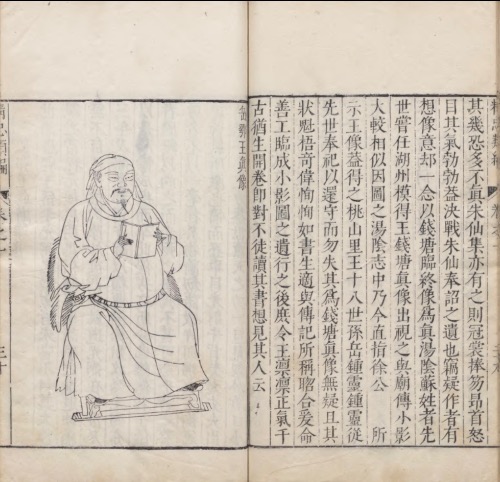 其幾恐多不眞朱仙集亦有之則冠裳捧笏昂首怒
目其氣勃勃葢決戰朱仙奉詔之遺也竊疑作者有
想像意却一念以錢塘臨終像爲眞湯陰蘇姓者先
世嘗任湖州模得王錢塘眞像出視之與廟傳小影
大較相似因圖之湯陰志中乃今直指徐公 所
示王像葢得之桃山里王十八世孫岳鍾靈鍾靈從
先世奉祀以還守而勿失其爲錢塘眞像無疑且其
狀魁梧奇偉恂恂如書生適與傳記所稱脗合爰命
善工臨成小影圖之遺行之後庶令王凛凛正氣千
古猶生開卷即對不徒讀其書想見其人云
岳鄂王眞像
三十